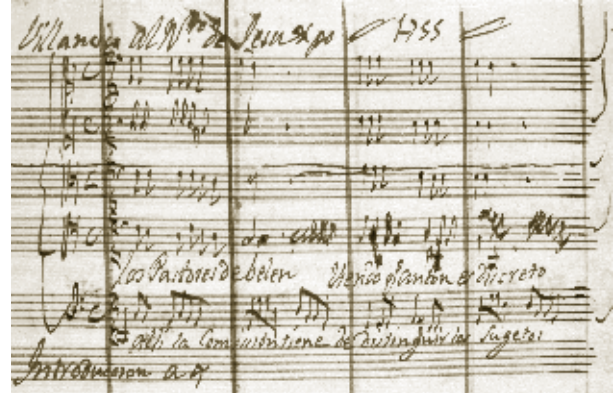 Villancico al N.to de Jesuxpo 1755
Los Pastores de belen Viendo q Anton es discreto
alli la Comission tiene de distinguir los sugetos
Introduccion a 4